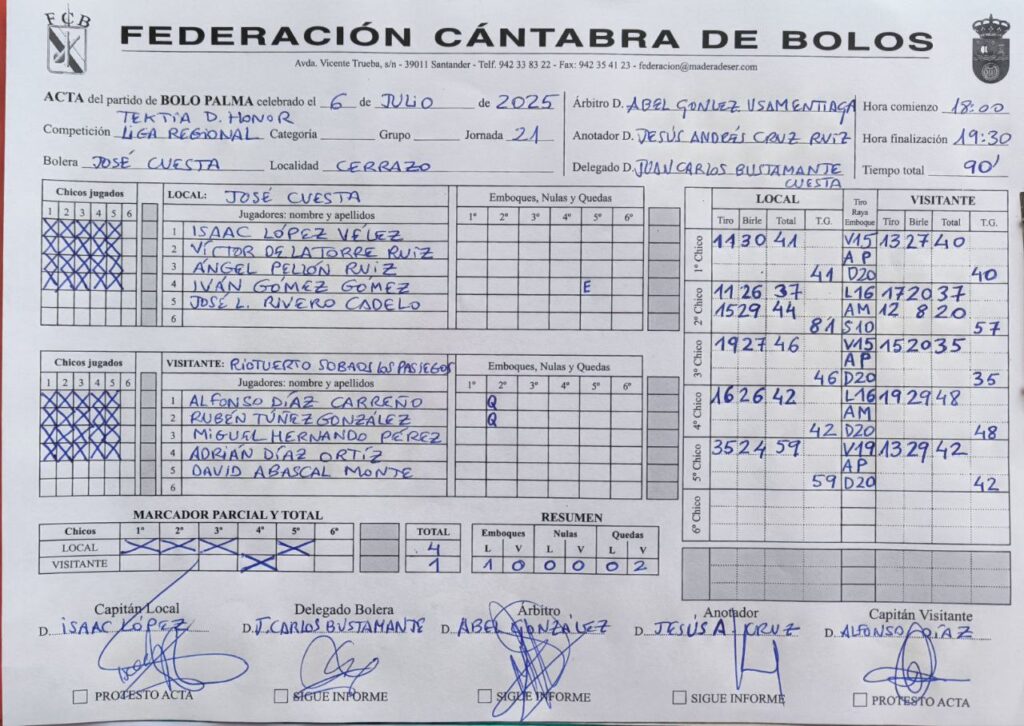 FCB
FEDERACIÓN CÁNTABRA DE BOLOS
Avda. Vicente Trueba, s/n - 39011 Santander - Telf. 942 33 83 22 - Fax: 942 35 41 23 - federacion@maderadeser.com
ACTA del partido de BOLO PALMA celebrado el 6 de JULIO de 2025
TEKTIA D. HONOR
Competición LIGA REGIONAL Categoría Grupo Jornada 21
Bolera JOSÉ CUESTA Localidad CERRAZO
Árbitro D. ABEL GONLEZ USAMENTIAGA
Anotador D. JESÚS ANDRÉS CRUZ RUIZ
Delegado D. JUAN CARLOS BUSTAMANTE
CUESTA
Hora comienzo 18:00
Hora finalización 19:30
Tiempo total 90'
Chicos jugados
1 2 3 4 5 6
X X X X X
X X X X X
X X X X X
X X X X X
LOCAL: JOSÉ CUESTA
Jugadores: nombre y apellidos
1 ISAAC LÓPEZ VÉLEZ
2 VÍCTOR DE LA TORRE RUIZ
3 ÁNGEL PELLÓN RUIZ
4 IVÁN GÓMEZ GÓMEZ
5 JOSÉ L. RIVERO CADELO
6
Emboques, Nulas y Quedas
1º 2º 3º 4º 5º 6º
E
Chicos jugados
1 2 3 4 5 6
X X X X X
X X X X X
X X X X X
X X X X X
VISITANTE: RIOTUERTO SOBAOS LOS PASIEGOS
Jugadores: nombre y apellidos
1 ALFONSO DÍAZ CARREÑO
2 RUBÉN TÚÑEZ GONZÁLEZ
3 MIGUEL HERNANDO PÉREZ
4 ADRIÁN DÍAZ ORTÍZ
5 DAVID ABASCAL MONTE
6
Emboques, Nulas y Quedas
1º 2º 3º 4º 5º 6º
Q
Q
LOCAL Tiro Raya Emboque VISITANTE
Tiro Birle Total T.G. Tiro Birle Total T.G.
1º Chico
11 30 41 V15 13 27 40
AP
41 D20 40
2º Chico
11 26 37 L16 17 20 37
15 29 44 AM 12 8 20
81 S10 57
3º Chico
19 27 46 V15 15 20 35
AP
46 D20 35
4º Chico
16 26 42 L16 19 29 48
AM
42 D20 48
5º Chico
35 24 59 V19 13 29 42
AP
59 D20 42
6º Chico
MARCADOR PARCIAL Y TOTAL
Chicos 1º 2º 3º 4º 5º 6º TOTAL
LOCAL X X X X 4
VISITANTE X 1
RESUMEN
Emboques Nulas Quedas
L V L V L V
1 0 0 0 0 2
Capitán Local
D. ISAAC LÓPEZ
PROTESTO ACTA
Delegado Bolera
D. J. CARLOS BUSTAMANTE
SIGUE INFORME
Árbitro
D. ABEL GONZÁLEZ
SIGUE INFORME
Anotador
D. JESÚS A. CRUZ
SIGUE INFORME
Capitán Visitante
D. ALFONSO DÍAZ
PROTESTO ACTA